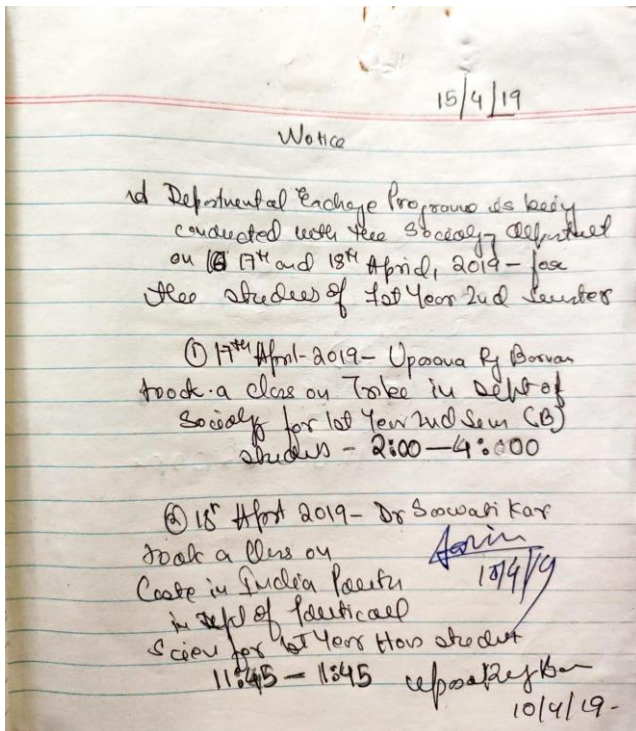 15/4/19
Notice
Departmental Exchange Programe is being
conducted with the Sociology Department
on 17th and 18th April, 2019 - for
the studees of 1st Year 2nd Semester
① 17th April - 2019 - Upasana Borvan
took a class on Tribe in Dept of
Sociology for 1st Year 2nd Sem (B)
students - 2:00 - 4:000
② 18th April 2019 - Dr Saswati Kar
took a class on
Caste in India
in Dept of Political
Scien for 1st Year Hons student
18/4/19
11:45 - 11:45
10/4/19-